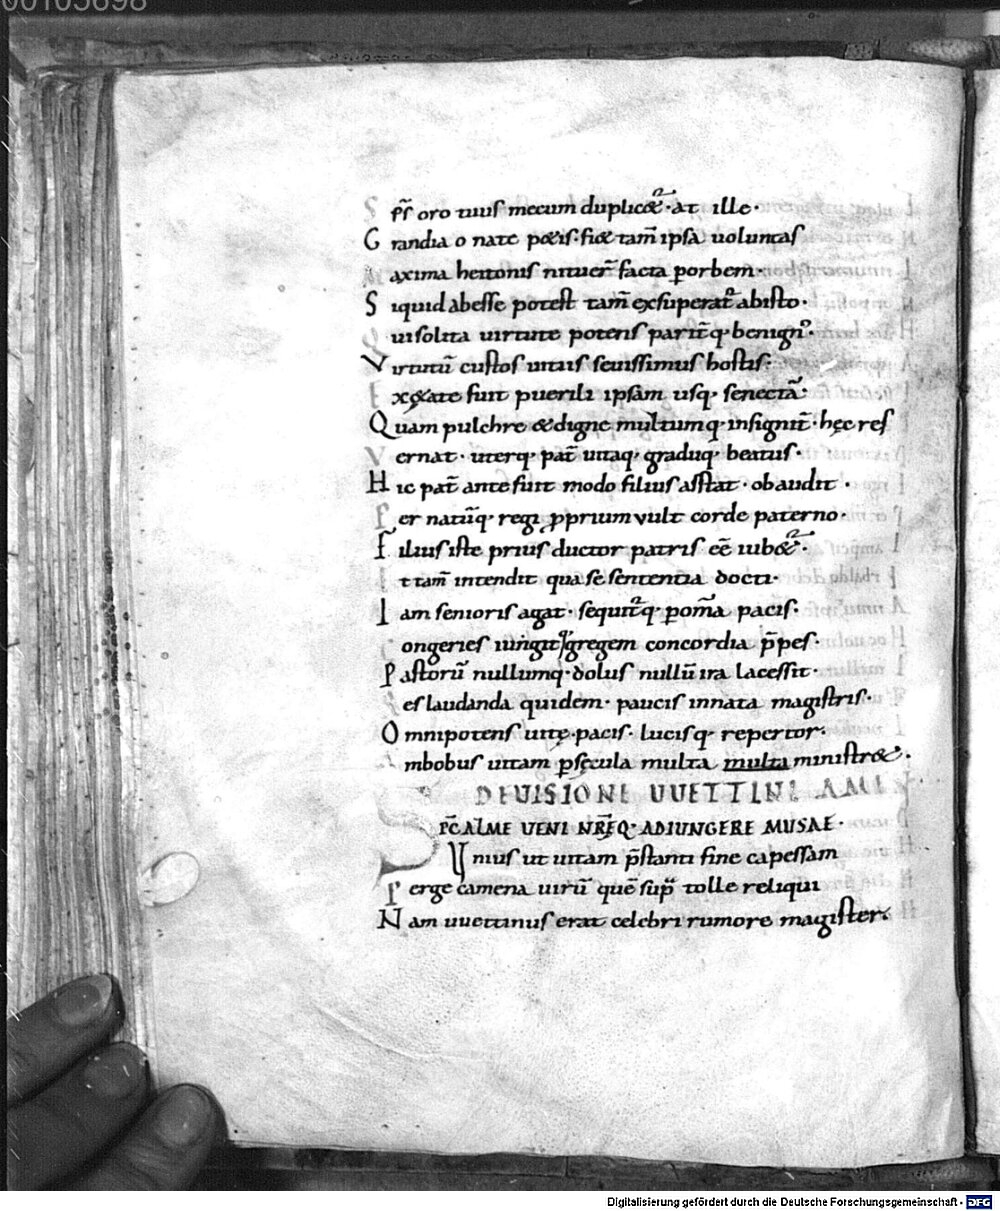 00105698
S pr̄s oro tuus mecum duplicet᷑· at ille·
G randia o nate petis· fiet tam̄ ipsa uoluntas
M axima heitonis nituer̄ facta ꝑorbem·
S iquid abesse potest tam̄ exsuperat᷑ abisto·
Q ui solita uirtute potens parit̄q· benignꝰ·
V irtutū custos uitiis seuissimus hostis·
E x etate fuit puerili ipsam usq· senectā·
Q uam pulchre & digne multumq· insignit̄· hęc res
V ernat· uterq· pat̄ uitaq· graduq· beatus·
H ic pat̄ ante fuit modo filius asstat· obaudit·
P er natūq· regi ꝓprium vult corde paterno·
F ilius iste prius ductor patris eē iubet᷑·
I t tam̄ intendit qua se sententia docti·
I am senioris agat· sequit᷑q· ꝑom̄a pacis·
C ongeries iungitq· gregem concordia p̄pes·
P astorū nullumq· dolus nullū ira lacessit·
R es laudanda quidem· paucis innata magistris·
O mnipotens uitę· pacis· lucisq· repertor·
A mbobus uitam ꝑsęcula multa multa ministret·
DEVISIONE VVETTINI
S IC̄ ALME VENI NR̄EQ· ADIUNGERE MUSAE·
V nius ut uitam p̄stanti fine capessam
P erge camena uirū quē sup̄ tolle reliqui
N am uuettinus erat celebri rumore magister·
Digitalisierung gefördert durch die Deutsche Forschungsgemeinschaft - DFG